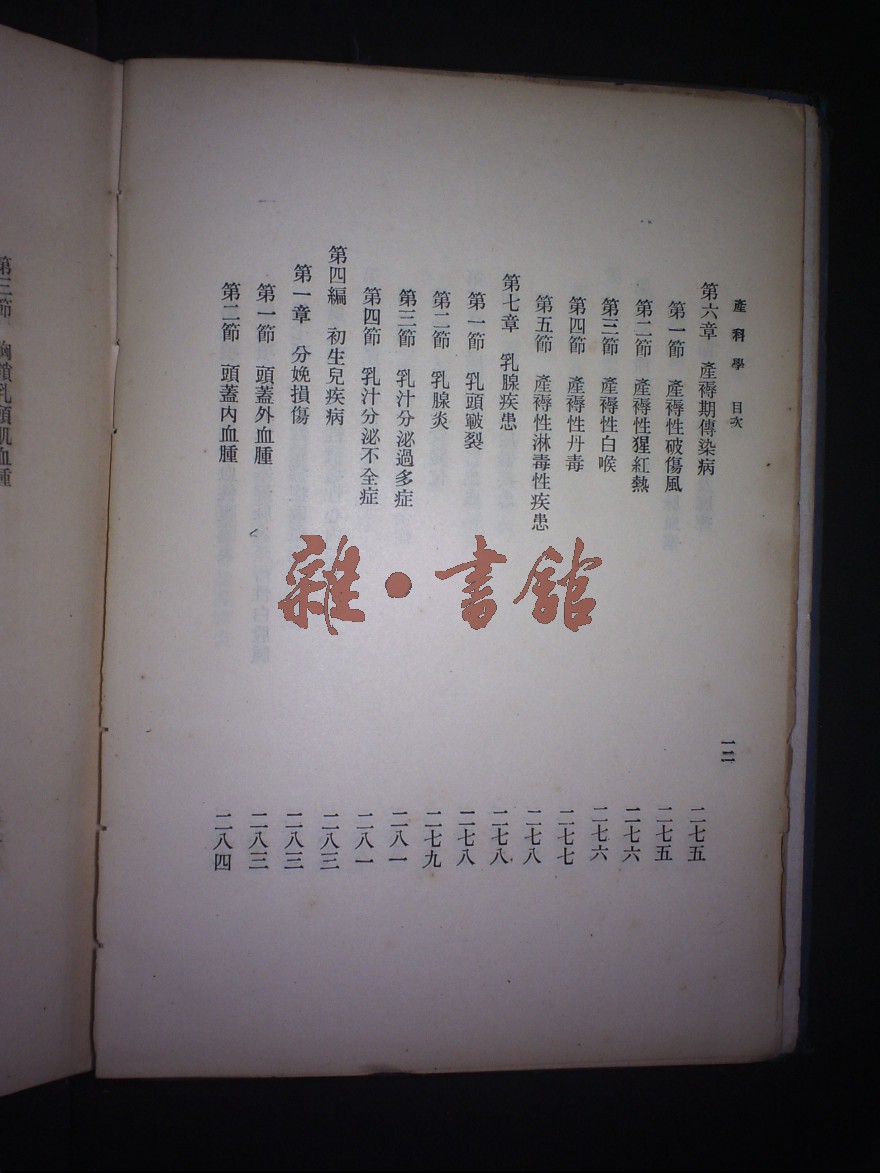 產科學 目次
一二
第六章 產褥期傳染病 二七五
第一節 產褥性破傷風 二七五
第二節 產褥性猩紅熱 二七六
第三節 產褥性白喉 二七六
第四節 產褥性丹毒 二七七
第五節 產褥性淋毒性疾患 二七八
第七章 乳腺疾患 二七八
第一節 乳頭皸裂 二七八
第二節 乳腺炎 二七九
第三節 乳汁分泌過多症 二八一
第四節 乳汁分泌不全症 二八一
第四編 初生兒疾病 二八三
第一章 分娩損傷 二八三
第一節 頭蓋外血腫 二八三
第二節 頭蓋內血腫 二八四
第三節 胸鎖乳頭肌血腫
雜·書館